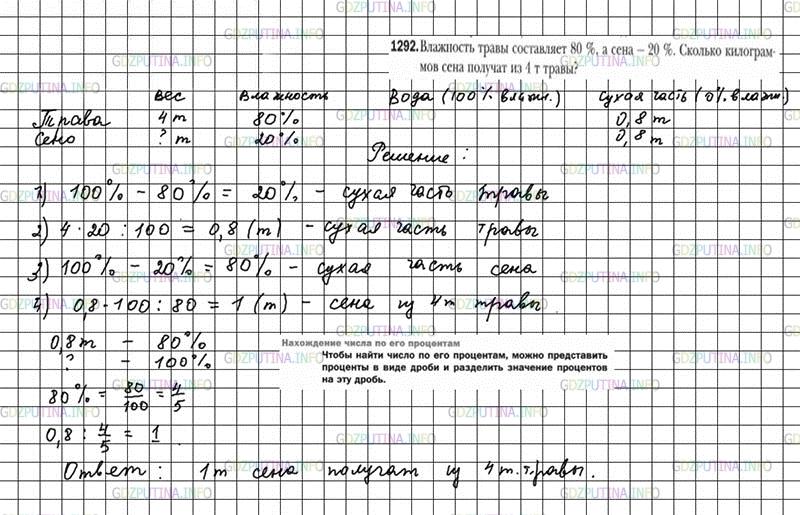 GDZPUTINA.INFO
1292. Влажность травы составляет 80 %, а сена – 20 %. Сколько килограм-
мов сена получат из 4 т травы?
вес влажность Вода (100% влажн.) сухая часть (0% влажн)
Трава 4 т 80% 0,8 т
Сено ? т 20% 0,8 т
Решение:
1) 100% - 80% = 20% - сухая часть травы
2) 4·20 : 100 = 0,8 (т) - сухая часть травы
3) 100% - 20% = 80% - сухая часть сена
4) 0,8·100 : 80 = 1 (т) - сена из 4т травы
0,8т - 80%
? - 100%
80% = 80/100 = 4/5
0,8 : 4/5 = 1
Нахождение числа по его процентам
Чтобы найти число по его процентам, можно представить
проценты в виде дроби и разделить значение процентов
на эту дробь.
Ответ: 1т сена получат из 4 т. травы.